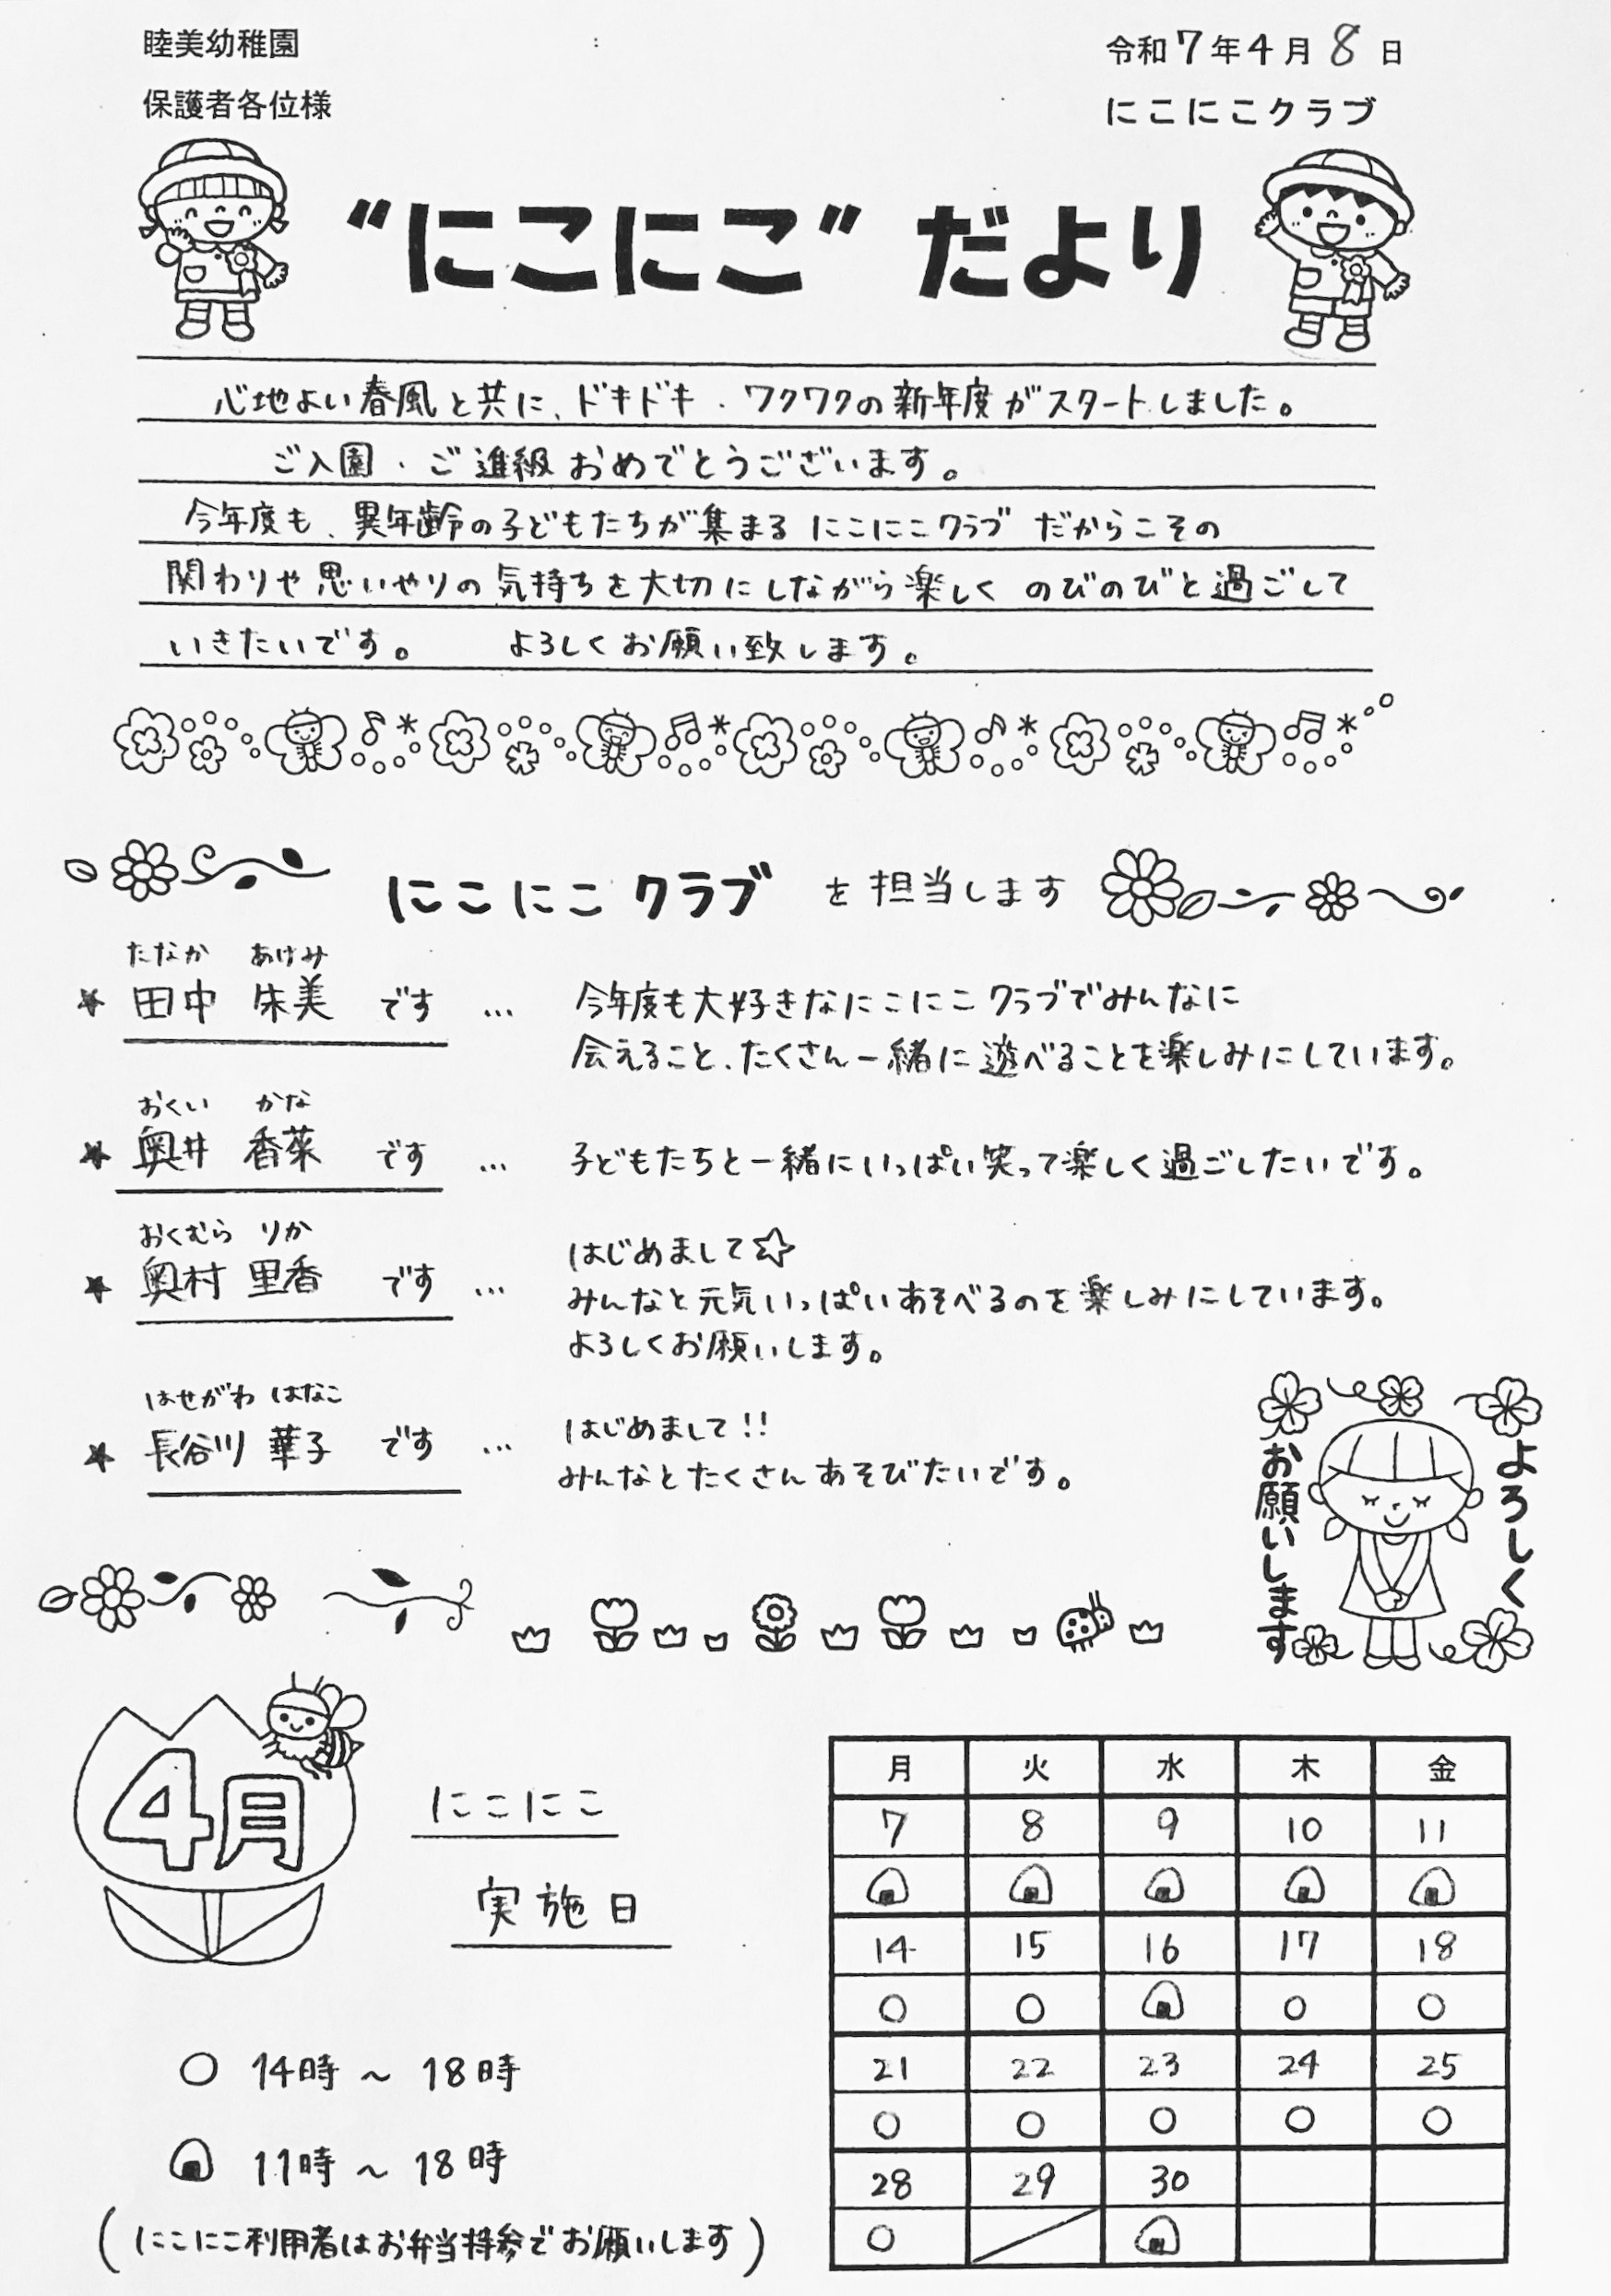 睦美幼稚園
保護者各位様
令和7年4月8日
にこにこクラブ
“にこにこ”だより
心地よい春風と共に、ドキドキ・ワクワクの新年度がスタートしました。
ご入園・ご進級おめでとうございます。
今年度も、異年齢の子どもたちが集まる にこにこクラブ だからこその
関わりや思いやりの気持ちを大切にしながら楽しく のびのびと過ごして
いきたいです。 よろしくお願い致します。
にこにこクラブ を担当します
たなか あけみ
★ 田中 朱美 です … 今年度も大好きなにこにこクラブでみんなに
会えること、たくさん一緒に遊べることを楽しみにしています。
おくい かな
★ 奥井 香菜 です … 子どもたちと一緒にいっぱい笑って楽しく過ごしたいです。
おくむら りか
★ 奥村 里香 です … はじめまして☆
みんなと元気いっぱいあそべるのを楽しみにしています。
よろしくお願いします。
はせがわ はなこ
★ 長谷川 華子 です … はじめまして!!
みんなとたくさんあそびたいです。
よろしく
お願いします
4月
にこにこ
実施日
○ 14時～18時
🍙 11時～18時
(にこにこ利用者はお弁当持参でお願いします)
月 火 水 木 金
7 8 9 10 11
🍙 🍙 🍙 🍙 🍙
14 15 16 17 18
○ ○ 🍙 ○ ○
21 22 23 24 25
○ ○ ○ ○ ○
28 29 30
○ ／ 🍙